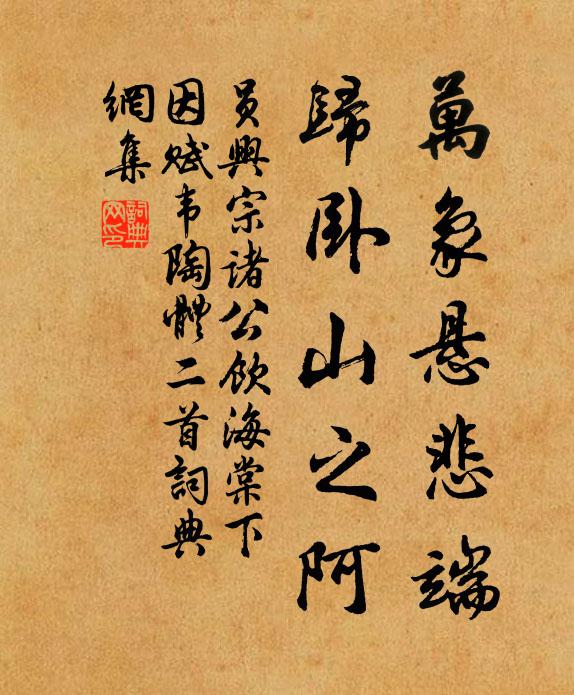 萬象悬悲端
歸卧山之阿
员興宗諸公飲海棠下
因赋韦陶體二首詞典
網集
詞典网印